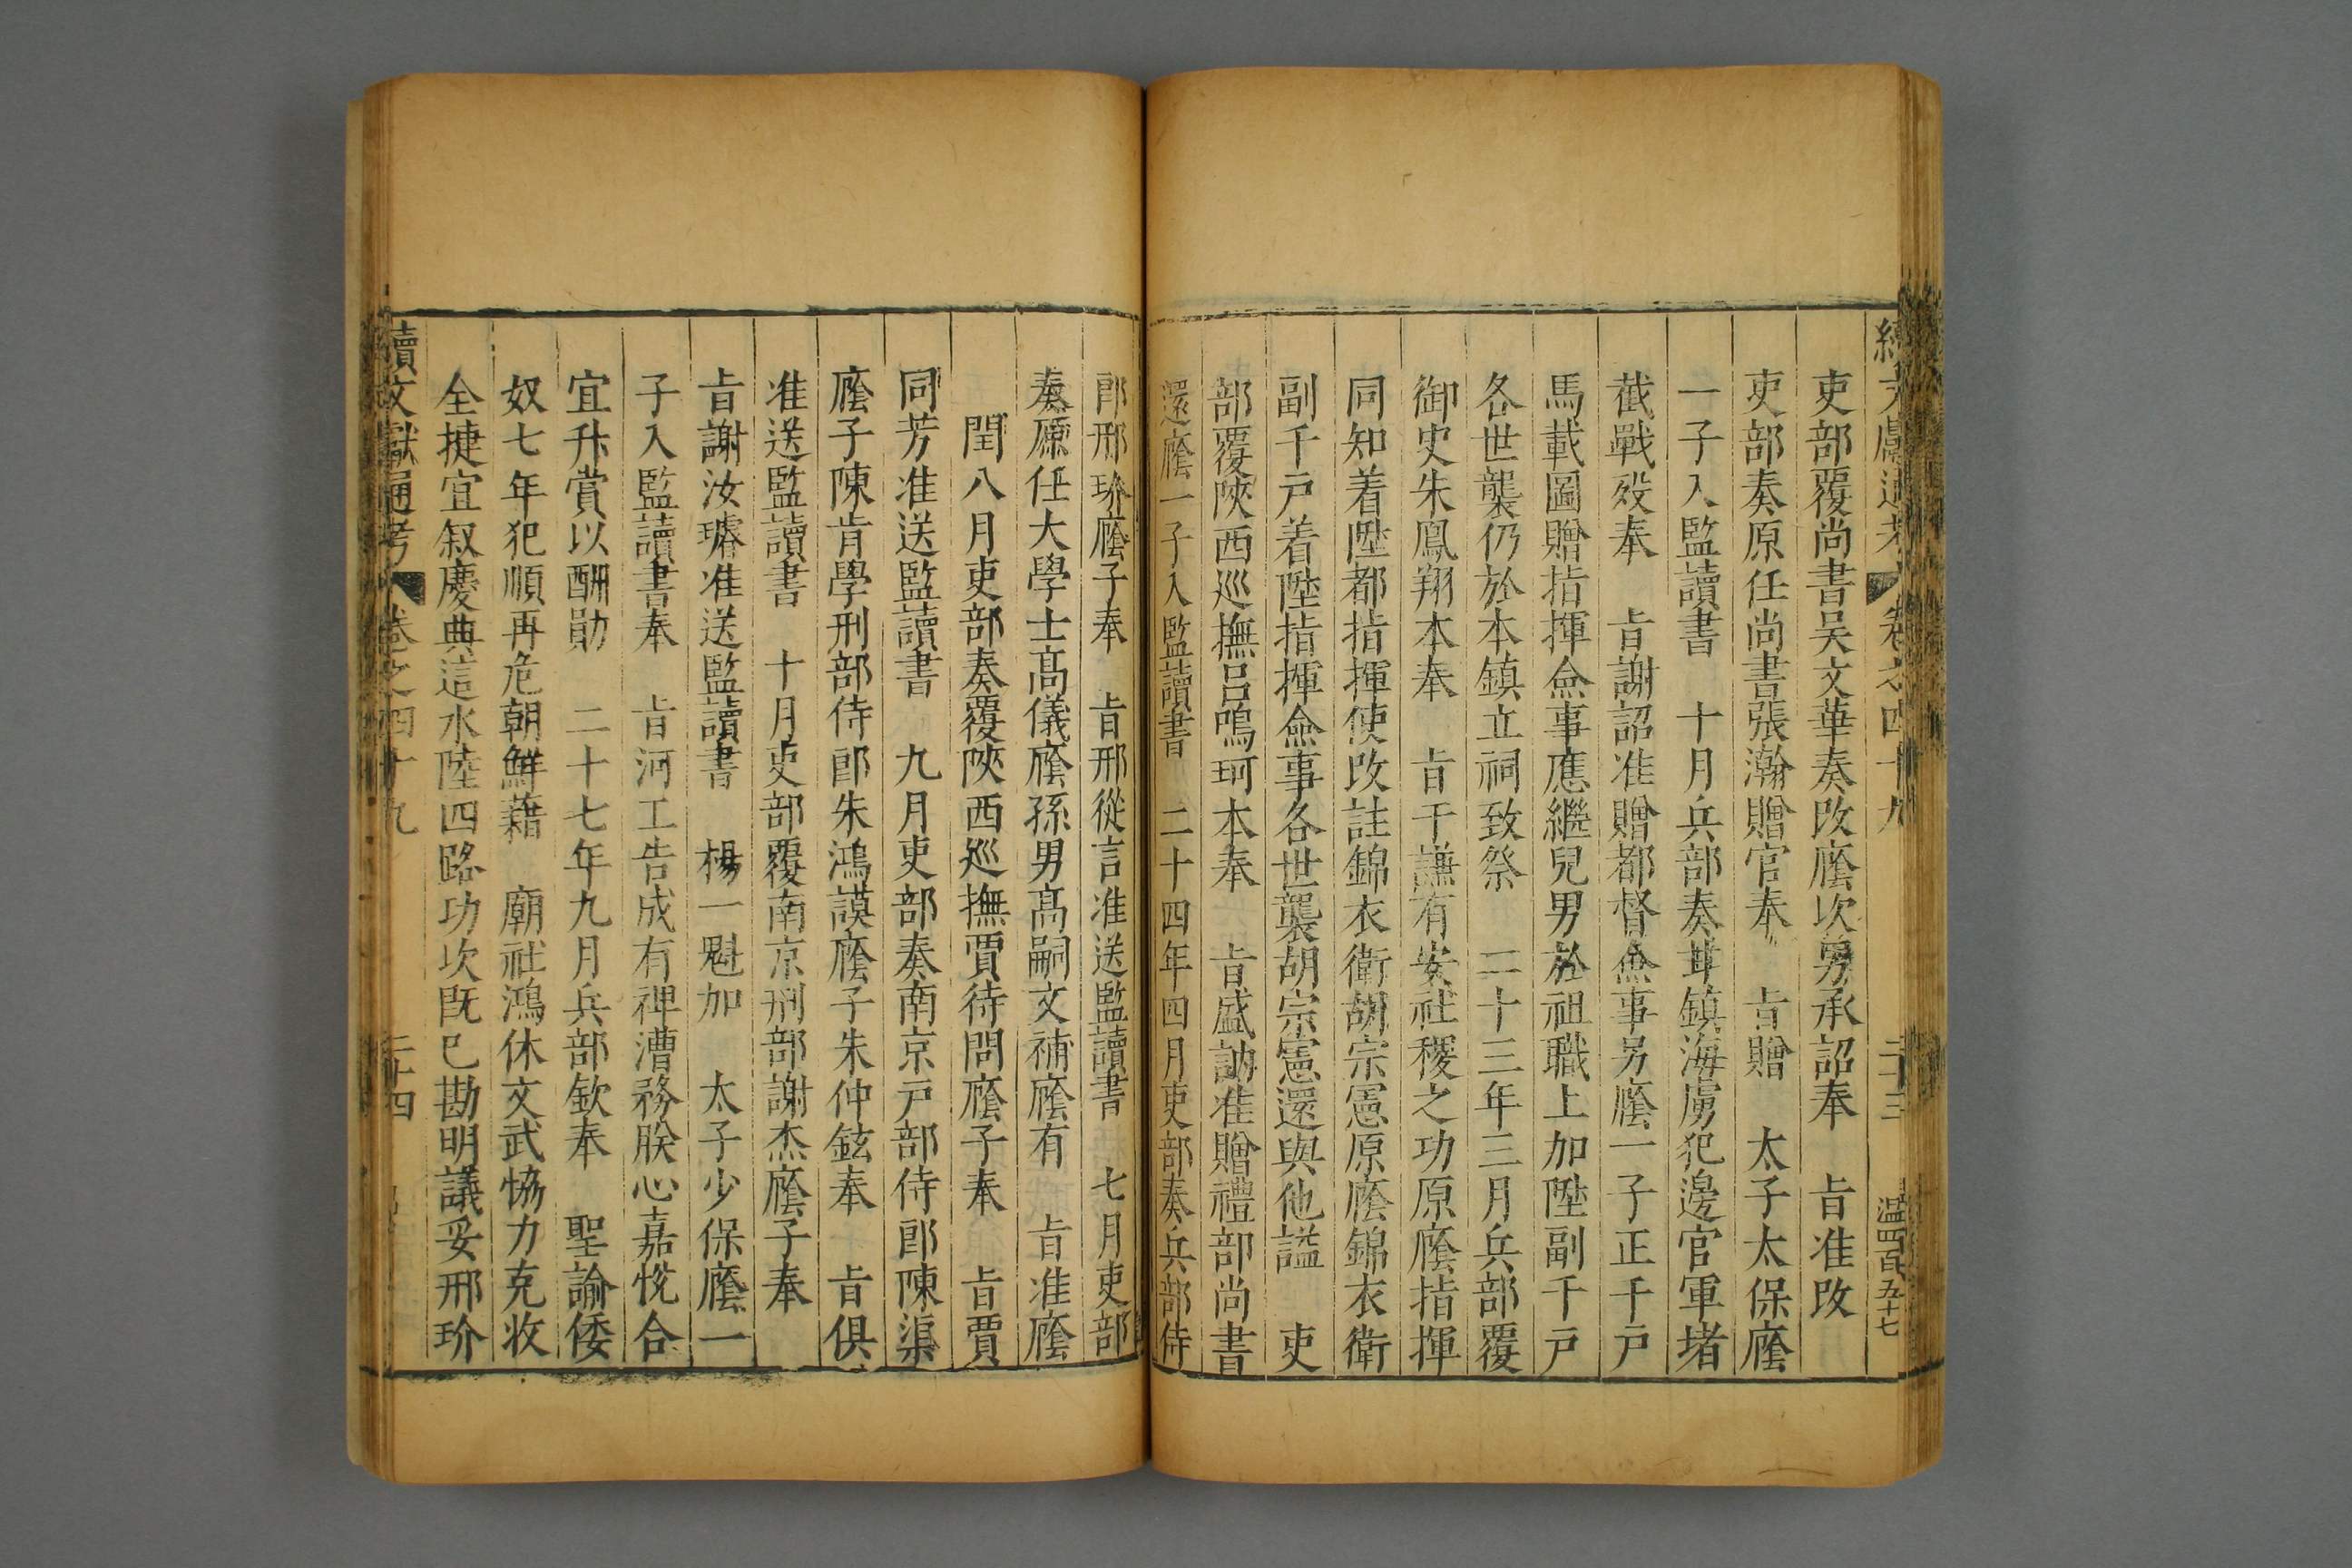 續文獻通考 卷之四十九 二十三 溫四百五十七
吏部覆尚書吴文華奏改廕次男承詔奉 旨准改
吏部奏原任尚書張瀚贈官奉 旨贈 太子太保廕
一子入監讀書 十月兵部奏甘鎮海虜犯邊官軍堵
截戰歿奉 旨謝詔准贈都督僉事另廕一子正千戸
馬載圖贈指揮僉事應繼兒男於祖職上加陞副千戸
各世襲仍於本鎮立祠致祭 二十三年三月兵部覆
御史朱鳳翔本奉 旨于謙有安社稷之功原廕指揮
同知着陞都指揮使改註錦衣衛胡宗憲原廕錦衣衛
副千戸着陞指揮僉事各世襲胡宗憲還與他謚 吏
部覆陝西巡撫呂鳴珂本奉 旨盛訥准贈禮部尚書
還廕一子入監讀書 二十四年四月吏部奏兵部侍
郎邢玠廕子奉 旨邢從言准送監讀書 七月吏部
奏原任大學士髙儀廕孫男髙嗣文補廕有 旨准廕
閏八月吏部奏覆陝西巡撫賈待問廕子奉 旨賈
同芳准送監讀書 九月吏部奏南京戸部侍郎陳渠
廕子陳肯學刑部侍郎朱鴻謨廕子朱仲鉉奉 旨俱
准送監讀書 十月吏部覆南京刑部謝杰廕子奉
旨謝汝璿准送監讀書 楊一魁加 太子少保廕一
子入監讀書奉 旨河工告成有裨漕務朕心嘉悅合
宜升賞以酬勛 二十七年九月兵部欽奉 聖諭倭
奴七年犯順再危朝鮮藉 廟社鴻休文武恊力克收
全捷宜叙慶典這水陸四路功次既已勘明議妥邢玠
續文獻通考 卷之四十九 二十四